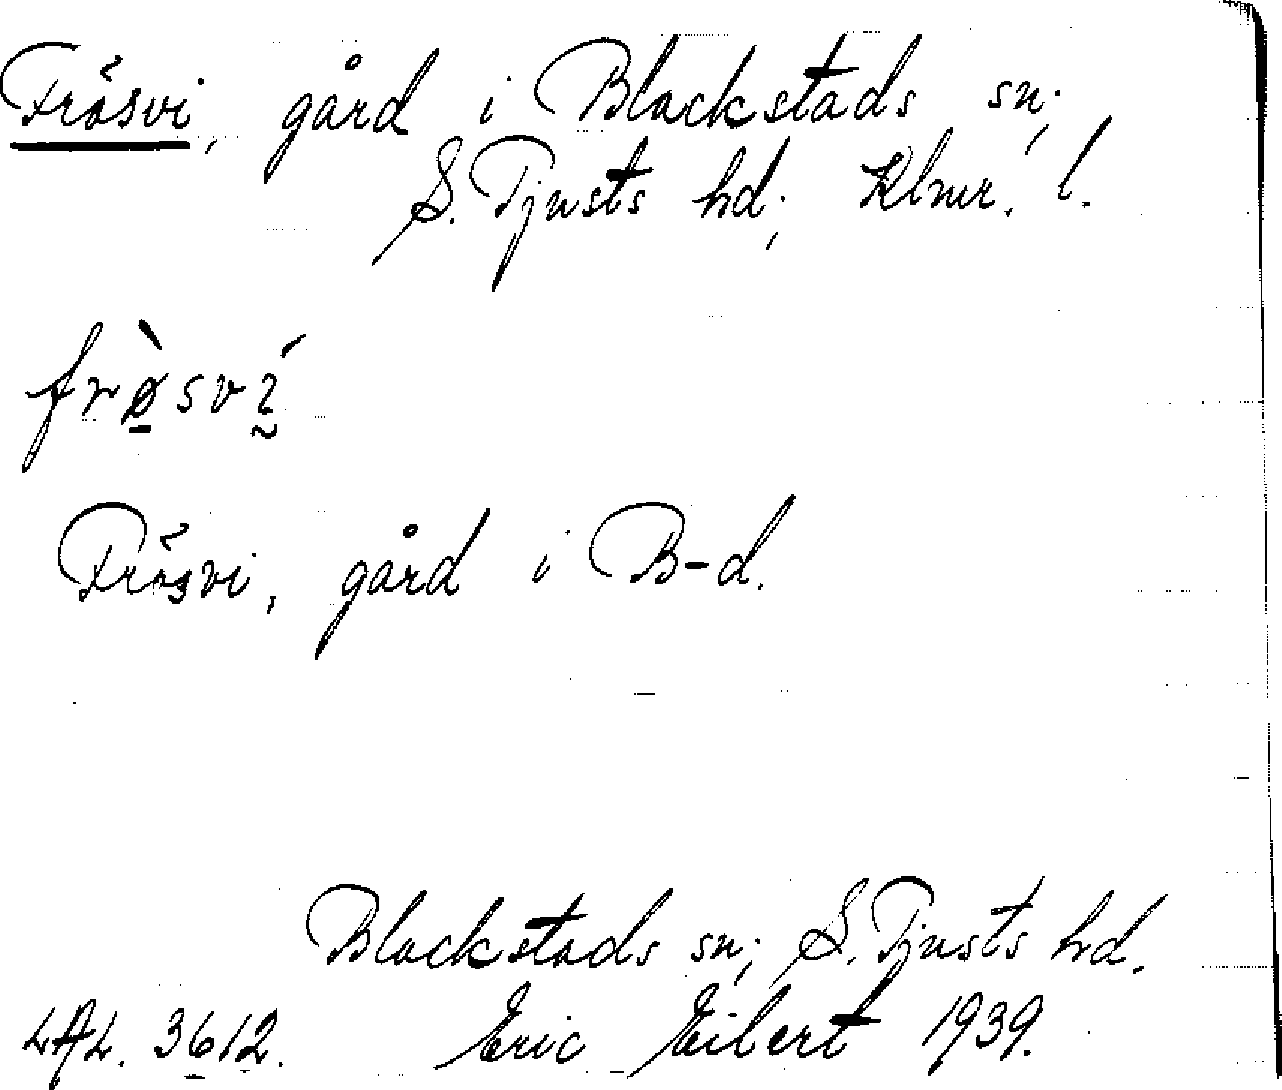 Frösvi, gård i Blackstads sn;
S. Tjusts hd; Klmr. l.
frø̀sví
Frösvi, gård i B-d.
Blackstads sn; S. Tjusts hd.
LAL. 3612. Eric Eilert 1939.